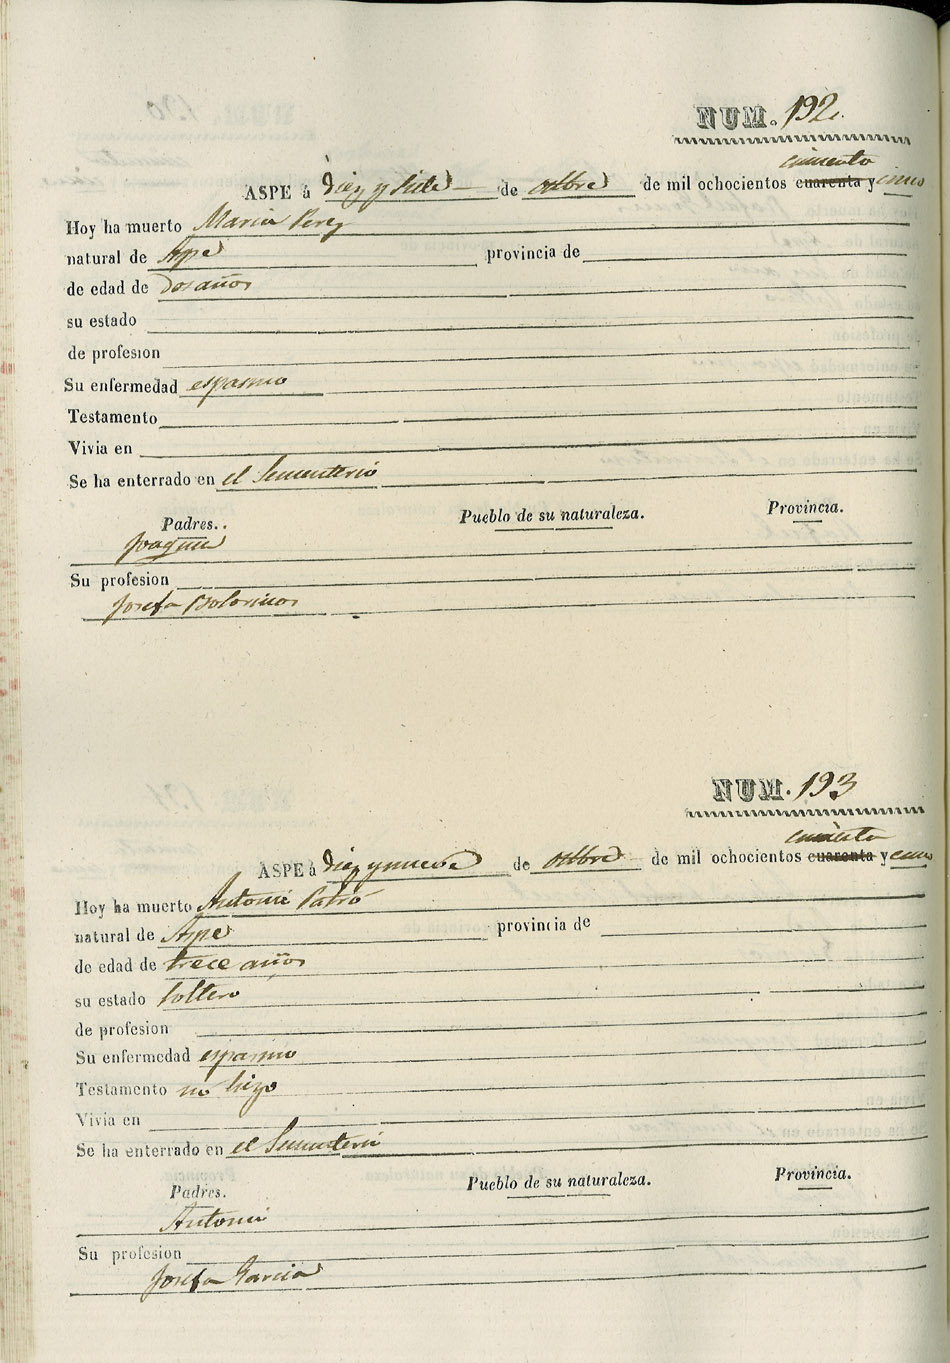 NUM. 192.
cincuenta
ASPE á Diez y siete de octbre de mil ochocientos cuarenta y cinco
Hoy ha muerto Maria Perez
natural de Aspe provincia de
de edad de Dos años
su estado
de profesion
Su enfermedad espasmo
Testamento
Vivia en
Se ha enterrado en el Sementerio
Padres. Pueblo de su naturaleza. Provincia.
Joaquin
Su profesion
Josefa Bolorinos
NUM. 193
cincuenta
ASPE á diez y nueve de octbre de mil ochocientos cuarenta y cinco
Hoy ha muerto Antonio
natural de Aspe provincia de
de edad de trece años
su estado soltero
de profesion
Su enfermedad espasmo
Testamento no hizo
Vivia en
Se ha enterrado en el Sementerio
Padres. Pueblo de su naturaleza. Provincia.
Antonio
Su profesion
Josefa Garcia